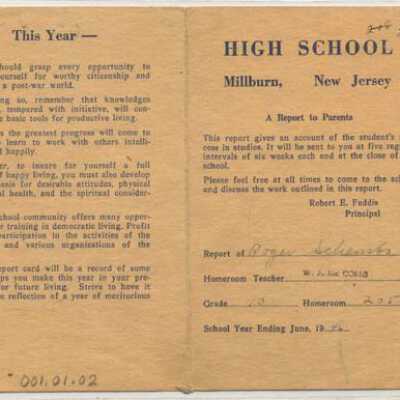 This Year —
ould grasp every opportunity to
ourself for worthy citizenship and
a post-war world.
ng so, remember that knowledges
, tempered with initiative, will com-
e basic tools for productive living.
s the greatest progress will come to
o learn to work with others intelli-
d happily.
er, to insure for yourself a full
f happy living, you must also develop
asis for desirable attitudes, physical
al health, and the spiritual consider-
chool community offers many oppor-
r training in democratic living. Profit
participation in the activities of the
and various organizations of the
eport card will be a record of some
ps you make this year in your pre-
for future living. Strive to have it
e reflection of a year of meritorious
001.01.02
HIGH SCHOOL
Millburn, New Jersey
A Report to Parents
This report gives an account of the student's
cess in studies. It will be sent to you at five reg
intervals of six weeks each and at the close of
school.
Please feel free at all times to come to the sch
and discuss the work outlined in this report.
Robert E. Faddis
Principal
Report of Roger
Homeroom Teacher
Grade 10 Homeroom 205
School Year Ending June, 19